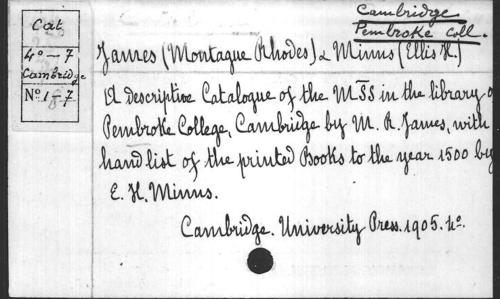 Cambridge
Pembroke Coll.
Cat
4o—7
Cambridge
No. 1—7
James (Montague Rhodes) & Minns (Ellis H.)
A descriptive Catalogue of the MSS in the library o
Pembroke College, Cambridge by M. R. James, with
hand list of the printed Books to the year 1500 by
E. H. Minns.
Cambridge. University Press. 1905. 4o.